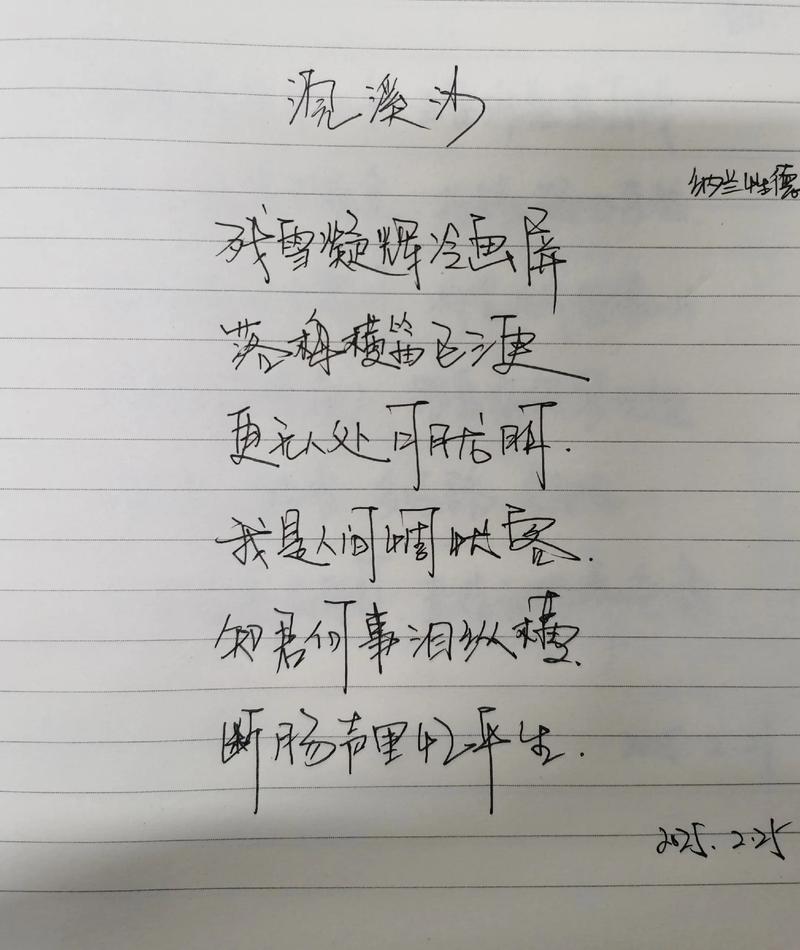 浣溪沙
纳兰性德
残雪凝辉冷画屏
落梅横笛已三更
更无人处月胧明.
我是人间惆怅客.
知君何事泪纵横.
断肠声里忆平生.
2025.2.25